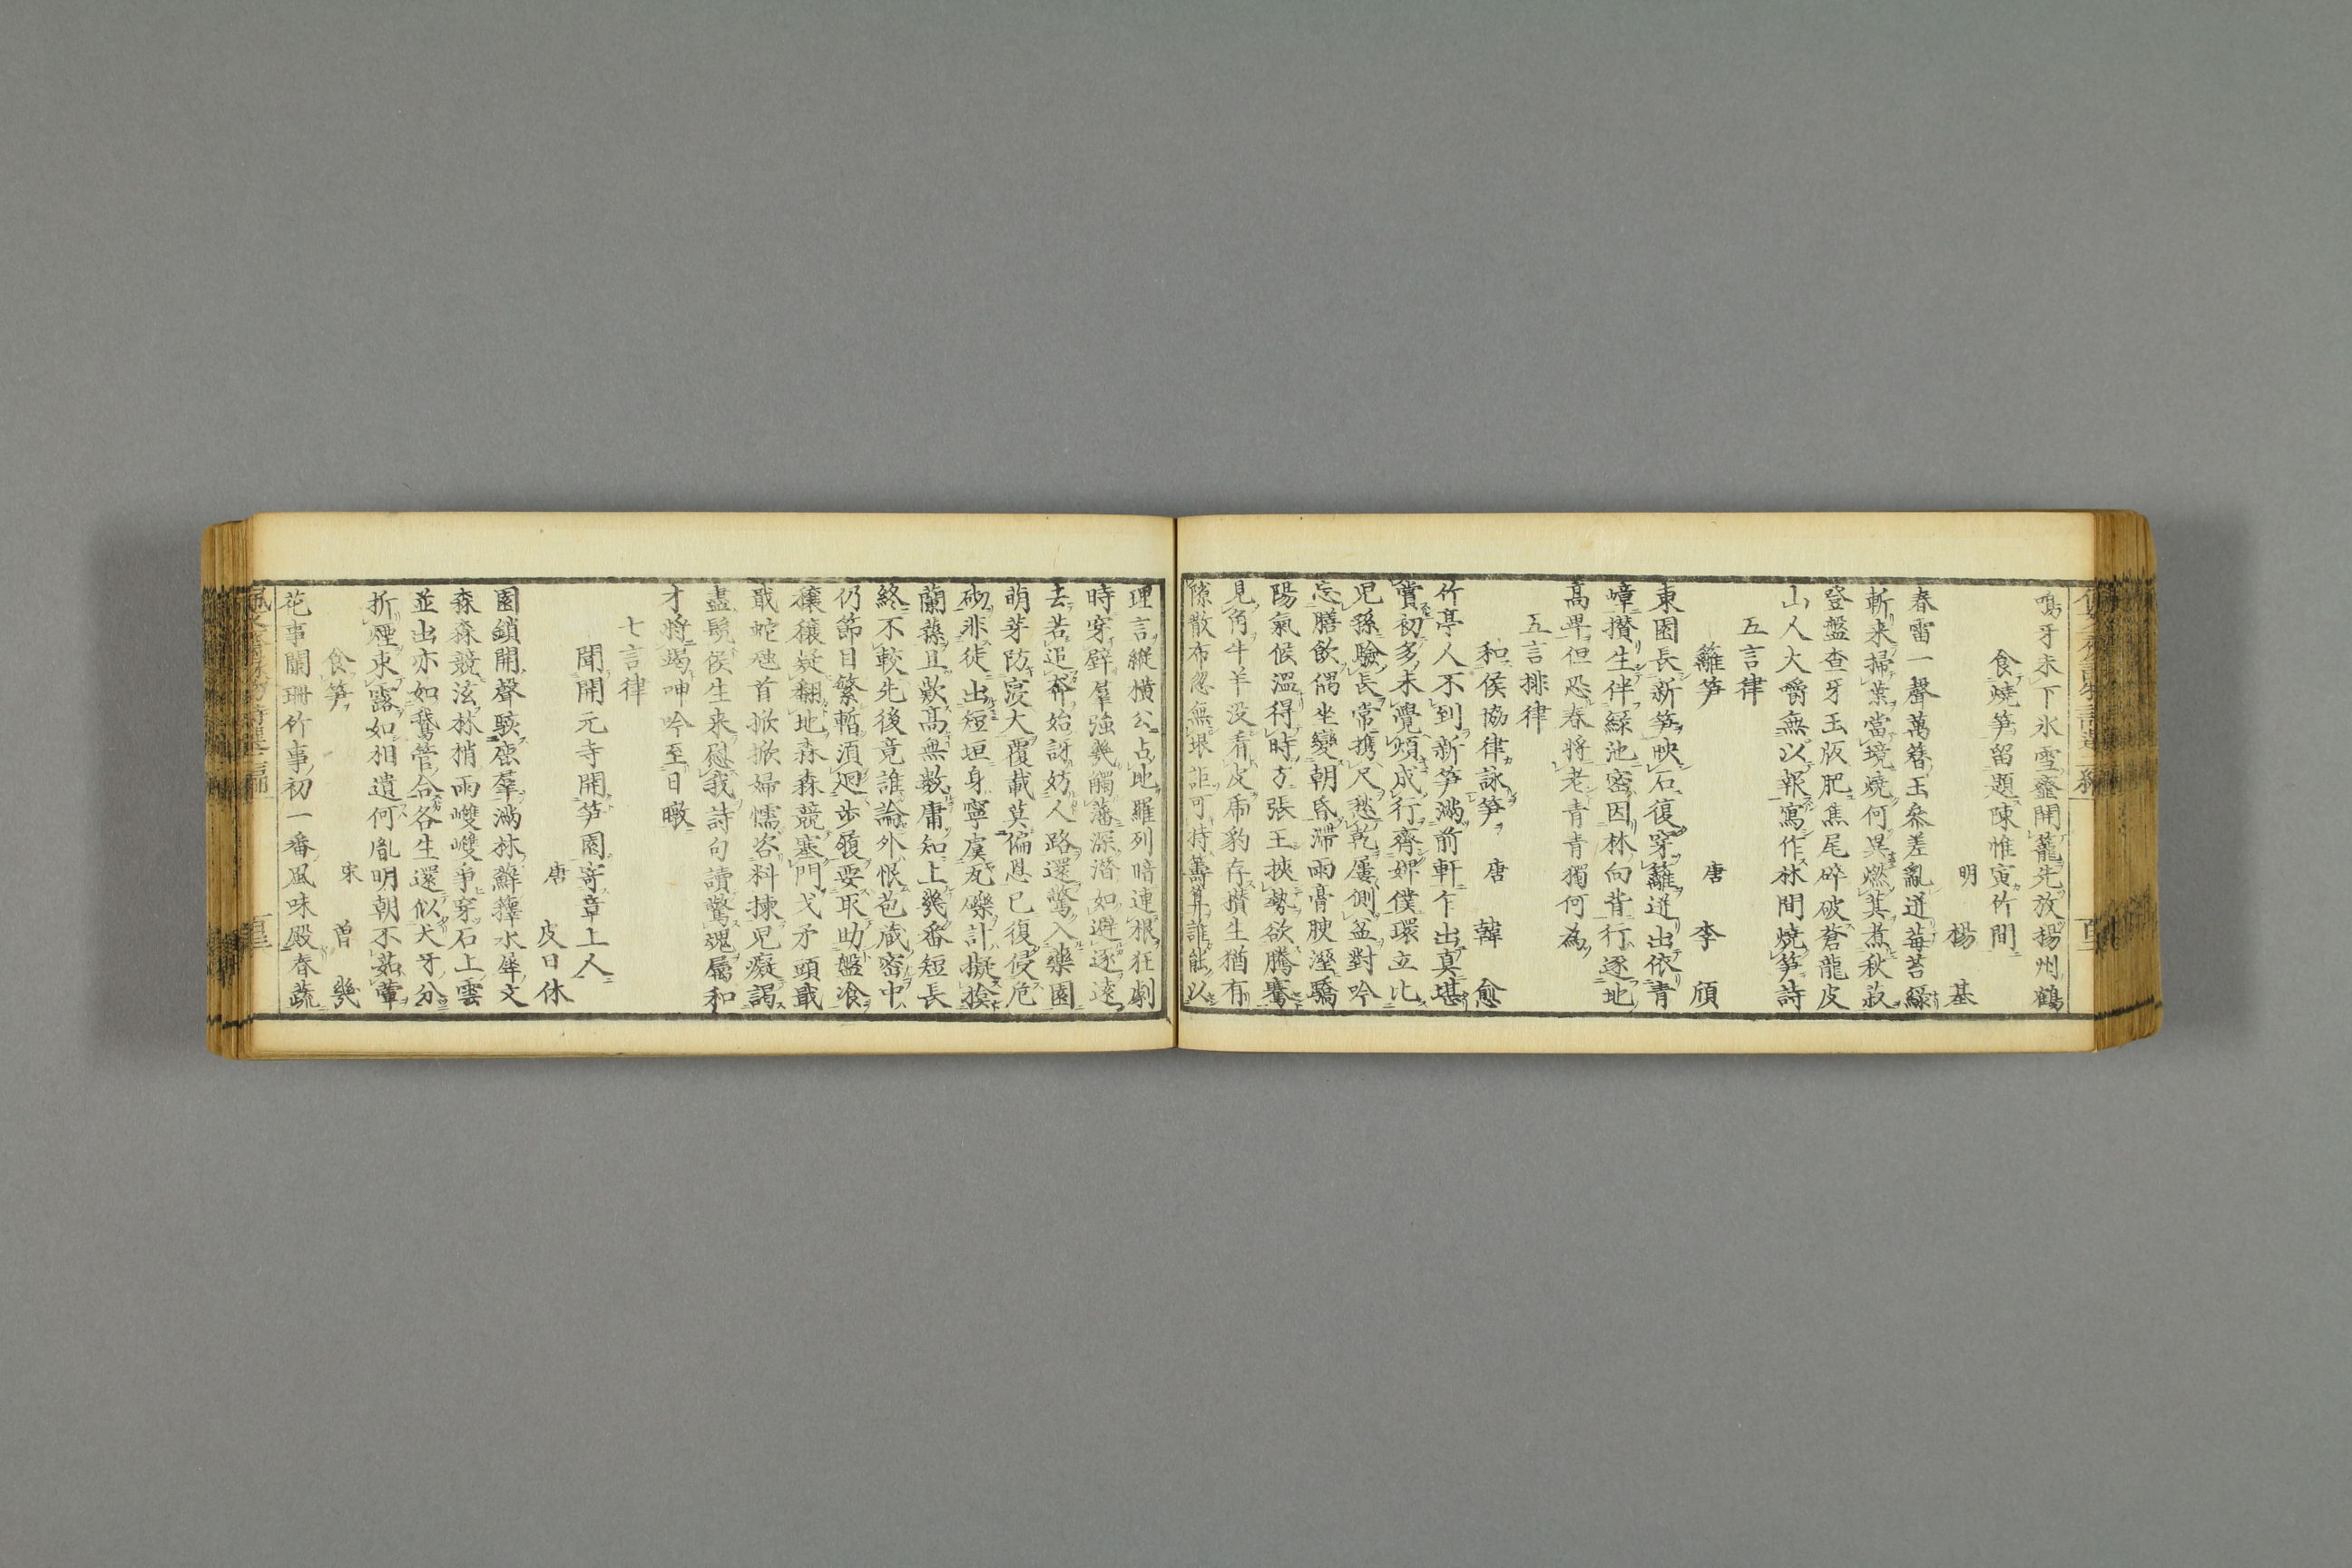 鳴牙未下氷雪齏開籠先放揚州鶴
食燒笋留題陳惟寅竹間
明 楊基
春雷一聲萬簪玉參差亂迸莓苔綠
斬来掃葉當境燒何異燃萁煮秋菽
登盤查牙玉版肥焦尾碎破蒼龍皮
山人大嚼無以報寫作林間燒笋詩
五言律
籬笋 唐 李頎
東園長新笋映石復穿籬迸出依青
嶂攅生伴綠池密因林向背行逐地
高卑但恐春将老青青獨何為
五言排律
和侯協律詠笋 唐 韓愈
竹亭人不到新笋滿前軒乍出真堪
賞初多未覺煩成行齊婢僕環立比
児孫驗長常携尺愁乾屢側盆對吟
忘膳飲偶坐變朝昏滞雨膏腴溼驕
陽氣候溫得時方張王挾勢欲騰騫
見角牛羊没看皮虎豹存攅生猶有
隙散布忽無垠詎可持籌算誰能以
理言縱橫公占地羅列暗連根狂劇
時穿壁羣強幾觸藩深潜如避逐遠
去若追奔始訝妨人路還驚入藥園
萌芽防寖大覆載莫偏恩已復侵危
砌非徒出短垣身寧虞瓦礫計擬掩
蘭蓀且歎高無數庸知上幾番短長
終不較先後竟誰論外恨苞蔵密中
仍節目繁暫須廻步履要取助盤飡
穰穰疑翻地森森競塞門戈矛頭戢
戢蛇虺首掀掀婦懦咨料揀児癡謁
盡髠侯生来慰我詩句讀驚魂屬和
才将竭呻吟至日暾
七言律
聞開元寺開笋園寄章上人
唐 皮日休
園鎖開聲駭鹿羣滿林蘚籜水犀文
森森競泫林梢雨㠉㠉争穿石上雲
並出亦如鵞管合各生還似犬牙分
折煙束露如相遺何胤明朝不茹葷
食笋 宋 曽幾
花事闌珊竹事初一番風味殿春蔬